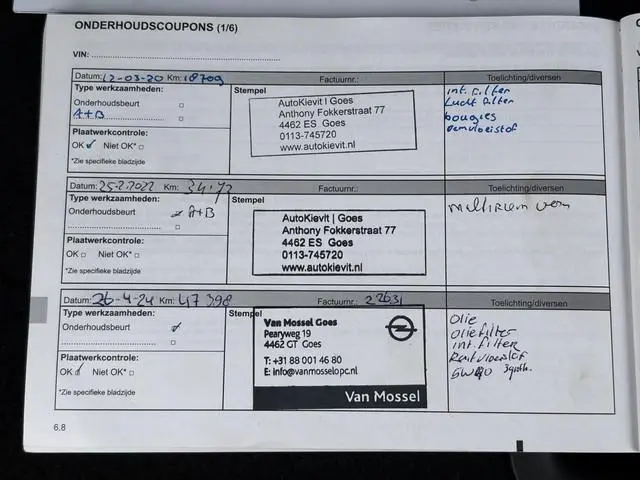 ONDERHOUDSCOUPONS (1/6)
VIN:
Datum: 12-03-20 Km: 18709 Factuurnr.: Toelichting/diversen
Type werkzaamheden:
Onderhoudsbeurt
A+B
Plaatwerkcontrole:
OK Niet OK*
*Zie specifieke bladzijde
Stempel
AutoKievit | Goes
Anthony Fokkerstraat 77
4462 ES Goes
0113-745720
www.autokievit.nl
int. filter
Lucht filter
bougies
remvloeistof
Datum: 25-2-2022 Km: Factuurnr.: Toelichting/diversen
Type werkzaamheden:
Onderhoudsbeurt A+B
Plaatwerkcontrole:
OK Niet OK*
*Zie specifieke bladzijde
Stempel
AutoKievit | Goes
Anthony Fokkerstraat 77
4462 ES Goes
0113-745720
www.autokievit.nl
Datum: 26-4-24 Km: 47398 Factuurnr.: 22631 Toelichting/diversen
Type werkzaamheden:
Onderhoudsbeurt
Plaatwerkcontrole:
OK Niet OK*
*Zie specifieke bladzijde
Stempel
Van Mossel Goes
Pearyweg 19
4462 GT Goes
T: +31 88 001 46 80
E: info@vanmosselopc.nl
Van Mossel
Olie
oliefilter
int. filter
Remvloeistof
6.8